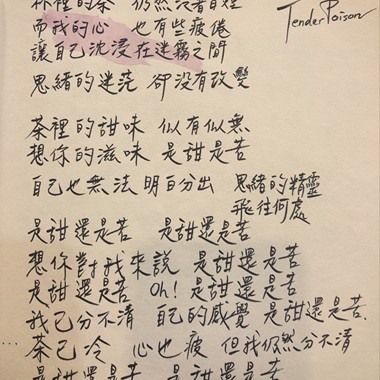 杯裡的茶 仍然沒著自煙
TenderPoison
而我的心 也有些疲倦
讓自己沈浸在迷霧之間
思緒的迷茫 卻沒有改變
茶裡的甜味 似有似無
想你的滋味 是甜是苦
自己也無法明白分出 思緒的精靈
飛往何處
是甜還是苦 是甜還是苦
想你對我來說 是甜還是苦
是甜還是苦 Oh! 是甜還是苦
我已分不清 自己的感覺 是甜還是苦.
茶已冷 心也疲 但我仍然分不清
是甜還是苦 是甜還是苦